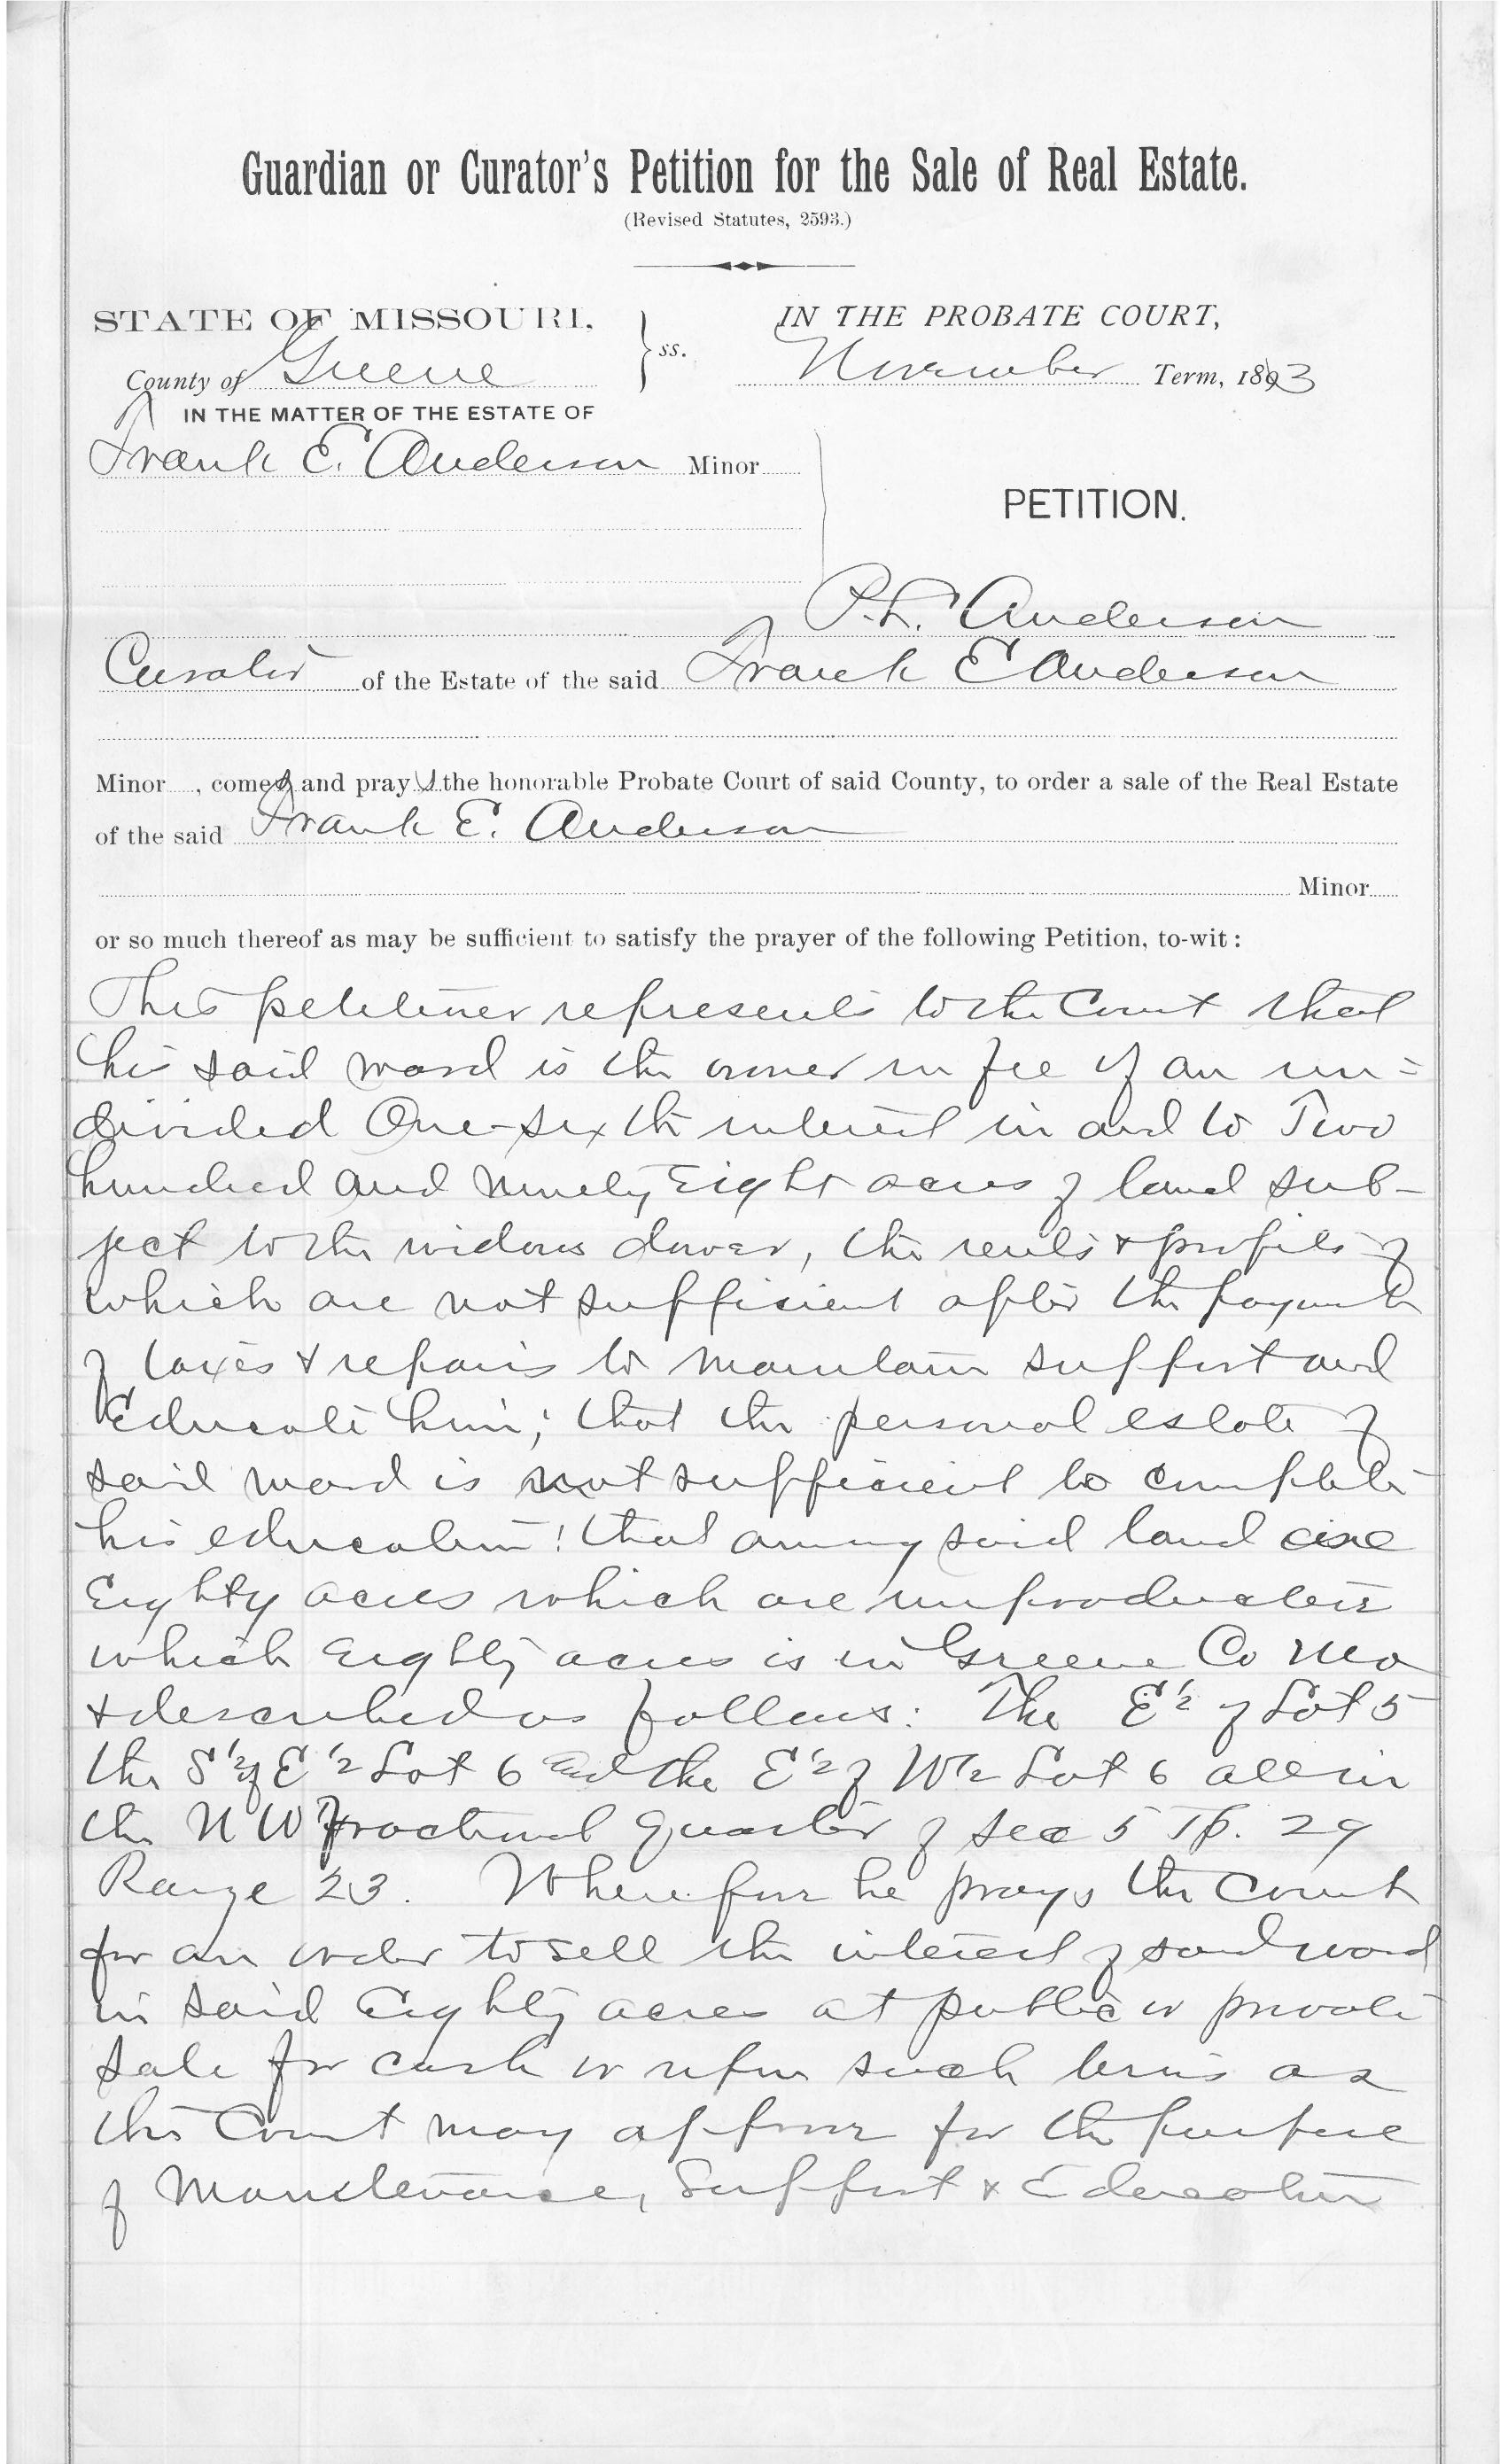 Guardian or Curator's Petition for the Sale of Real Estate.
(Revised Statutes, 2593.)
STATE OF MISSOURI,
County of Greene
ss.
IN THE PROBATE COURT,
November Term, 1893
IN THE MATTER OF THE ESTATE OF
Frank E. Anderson Minor
PETITION.
P.L. Anderson
Curator of the Estate of the said Frank E Anderson
Minor , comes and prays the honorable Probate Court of said County, to order a sale of the Real Estate
of the said Frank E. Anderson
Minor
or so much thereof as may be sufficient to satisfy the prayer of the following Petition, to-wit:
This petitioner represents to the Court that
his said ward is the owner in fee of an un=
divided One-sixth interest in and to Two
hundred and ninety Eight acres of land sub-
ject to the widows dower, the rents & profits of
which are not sufficient after the payment
of taxes & repairs to maintain support and
Educate him; that the personal estate of
said ward is not sufficient to complete
his education; that among said land are
Eighty acres which are unproductive
which Eighty acres is in Greene Co Mo
& described as follows: The E 1/2 of Lot 5
the S 1/2 of E 1/2 Lot 6 and the E 1/2 of W 1/2 Lot 6 all in
the N W Fractional Quarter of Sec 5 Tp. 29
Range 23. Wherefore he prays the Court
for an order to sell the interest of said ward
in said Eighty acres at public or private
sale for cash or upon such terms as
this Court may approve for the purpose
of Maintenance, Support & Education